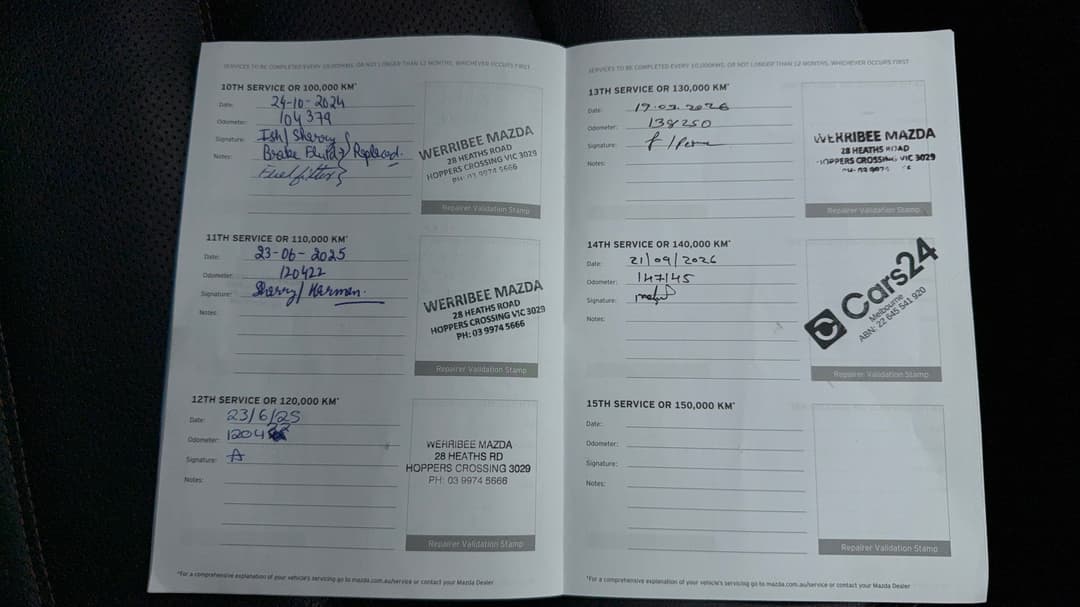 SERVICES TO BE COMPLETED EVERY 10,000KMS, OR NOT LONGER THAN 12 MONTHS, WHICHEVER OCCURS FIRST
10TH SERVICE OR 100,000 KM*
Date: 24-10-2024
Odometer: 104379
Signature: Ish/ Sherry
Notes: Brake Fluid Replaced.
Fuel filter
WERRIBEE MAZDA
28 HEATHS ROAD
HOPPERS CROSSING VIC 3029
PH: 03 9974 5666
Repairer Validation Stamp
11TH SERVICE OR 110,000 KM*
Date: 23-06-2025
Odometer: 120422
Signature: Sherry/ Harman.
Notes:
WERRIBEE MAZDA
28 HEATHS ROAD
HOPPERS CROSSING VIC 3029
PH: 03 9974 5666
Repairer Validation Stamp
12TH SERVICE OR 120,000 KM*
Date: 23/6/25
Odometer:
Signature: A
Notes:
WERRIBEE MAZDA
28 HEATHS RD
HOPPERS CROSSING 3029
PH: 03 9974 5666
Repairer Validation Stamp
*For a comprehensive explanation of your vehicle's servicing go to mazda.com.au/service or contact your Mazda Dealer
SERVICES TO BE COMPLETED EVERY 10,000KMS, OR NOT LONGER THAN 12 MONTHS, WHICHEVER OCCURS FIRST
13TH SERVICE OR 130,000 KM*
Date:
Odometer: 138250
Signature:
Notes:
WERRIBEE MAZDA
28 HEATHS ROAD
HOPPERS CROSSING VIC 3029
Repairer Validation Stamp
14TH SERVICE OR 140,000 KM*
Date: 21/09/2026
Odometer: 147145
Signature:
Notes:
Cars24
Melbourne
ABN: 22 645 541 920
Repairer Validation Stamp
15TH SERVICE OR 150,000 KM*
Date:
Odometer:
Signature:
Notes:
Repairer Validation Stamp
*For a comprehensive explanation of your vehicle's servicing go to mazda.com.au/service or contact your Mazda Dealer